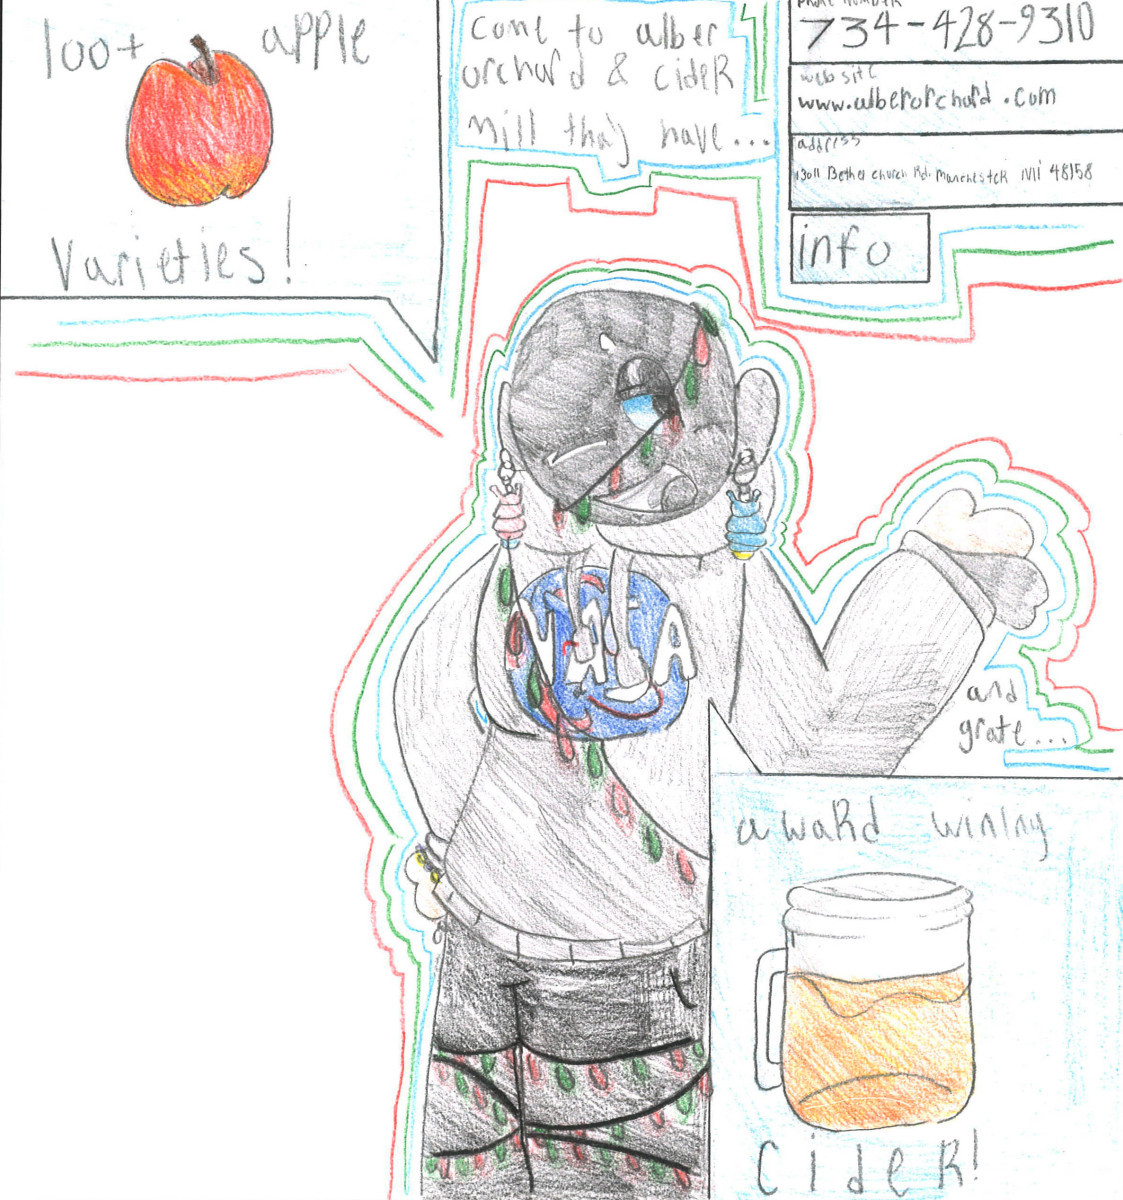 100+ apple
Varieties!
come to alber
orchard & cideR
mill thay have...
phone number
734-428-9310
website
www.alberorchard.com
address
13011 Bethel church Rd. ManchesteR Mi 48158
info
NASA
and
grate...
awaRd wining
CideR!